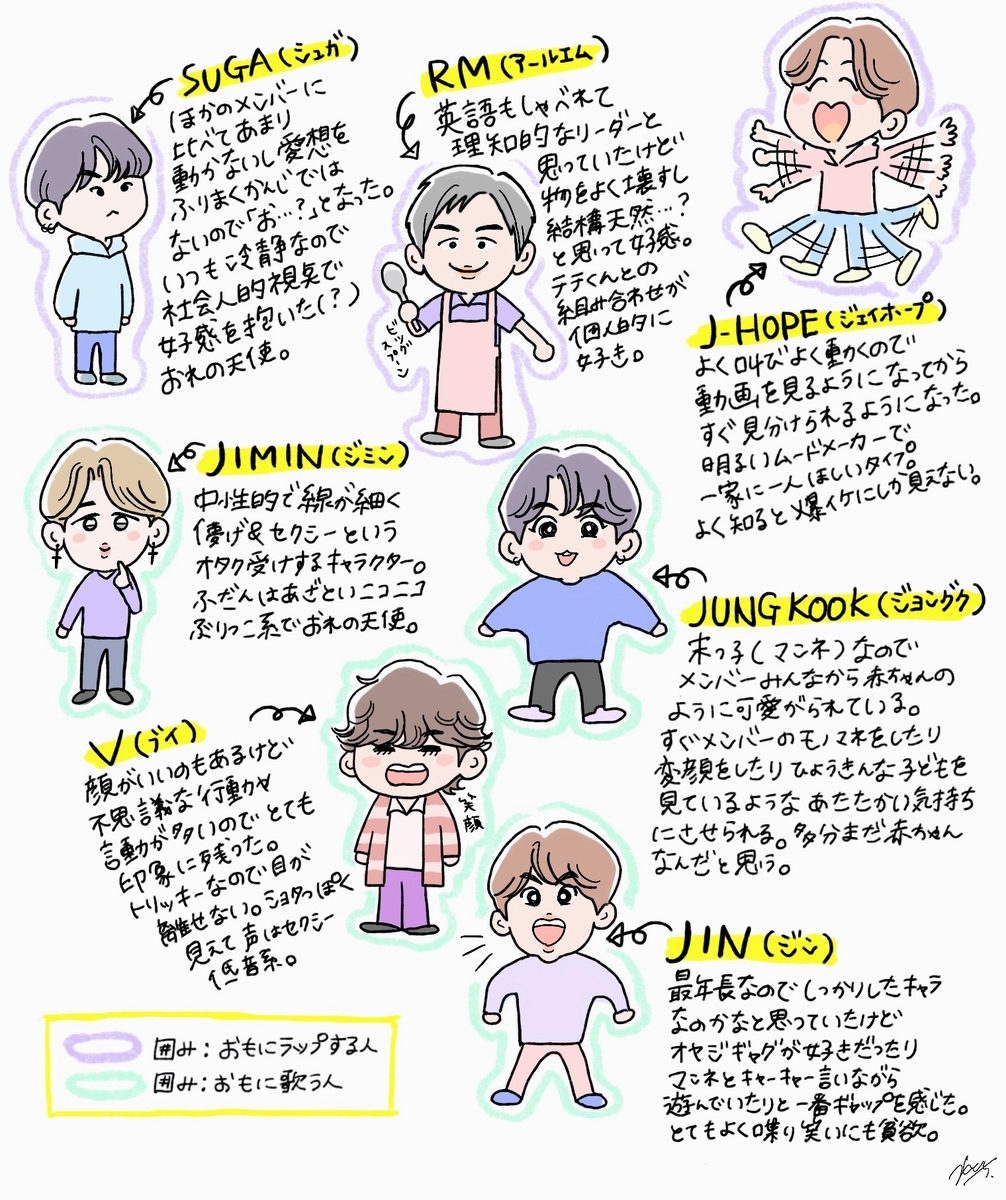 SUGA(シュガ)
ほかのメンバーに
比べてあまり
動かないし愛想を
ふりまくかんじでは
ないので「お…?」となった。
いつも冷静なので
社会人的視点で
好感を抱いた(?)
おれの天使。
RM(アールエム)
英語もしゃべれて
理知的なリーダーと
思っていたけど
物をよく壊すし
結構天然…?
と思って好感。
テテくんとの
組み合わせが
個人的に
好き。
ビッグ
スプーン
J-HOPE(ジェイホープ)
よく叫びよく動くので
動画を見るようになってから
すぐ見分けられるようになった。
明るいムードメーカーで
一家に一人ほしいタイプ。
よく知ると爆イケにしか見えない。
JIMIN(ジミン)
中性的で線が細く
儚げ&セクシーという
オタク受けするキャラクター。
ふだんはあざといニコニコ
ぶりっこ系でおれの天使。
JUNGKOOK(ジョングク)
末っ子(マンネ)なので
メンバーみんなから赤ちゃんの
ように可愛がられている。
すぐメンバーのモノマネをしたり
変顔をしたりひょうきんな子どもを
見ているようなあたたかい気持ち
にさせられる。多分まだ赤ちゃん
なんだと思う。
V(ブイ)
顔がいいのもあるけど
不思議な行動や
言動が多いのでとても
印象に残った。
トリッキーなので目が
離せない。ショタっぽく
見えて声はセクシー
低音系。
笑顔
JIN(ジン)
最年長なのでしっかりしたキャラ
なのかなと思っていたけど
オヤジギャグが好きだったり
マンネとキャーキャー言いながら
遊んでいたりと一番ギャップを感じた。
とてもよく喋り笑いにも貧欲。
囲み:おもにラップする人
囲み:おもに歌う人